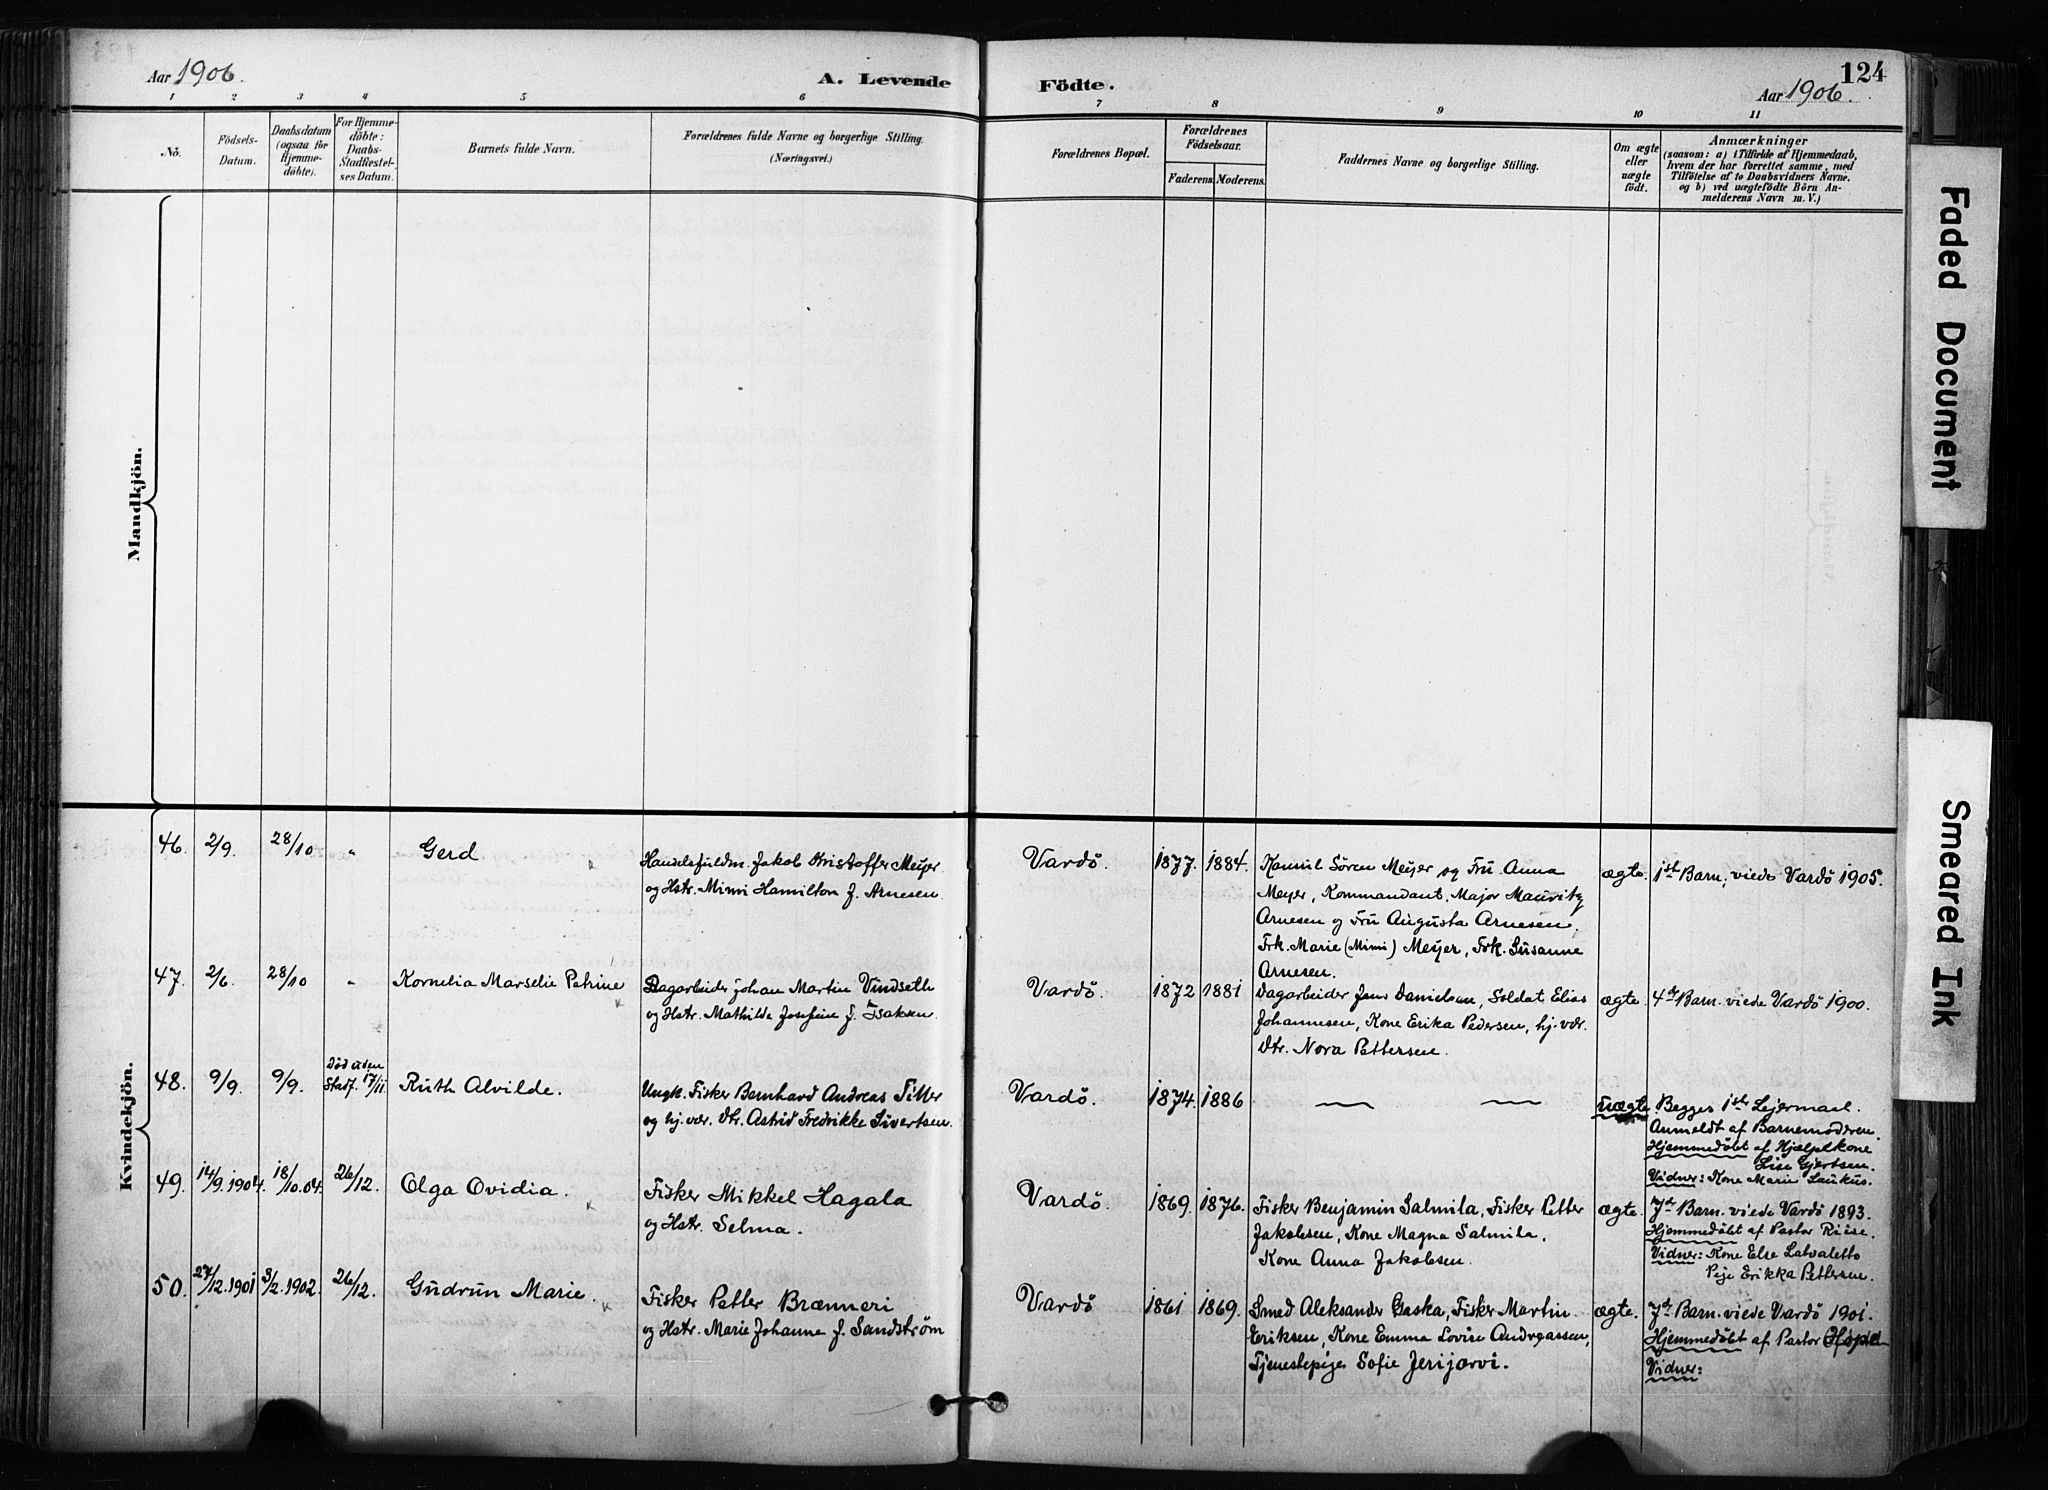 Aar 1906.
A. Levende
Födte.
124
Aar 1906.
1 2 3 4 5 6 7 8 9 10 11
No.
Födsels-
Datum.
Daabsdatum
(ogsaa for
Hjemme-
döbte).
For Hjemme-
döbte:
Daabs-
Stadfæstel-
ses Datum.
Barnets fulde Navn.
Forældrenes fulde Navne og borgerlige Stilling.
(Næringsvei.)
Forældrenes Bopæl.
Forældrenes
Födselsaar.
Faderens. Moderens.
Faddernes Navne og borgerlige Stilling.
Om ægte
eller
uægte
födt.
Anmærkninger
(saasom: a) i Tilfælde af Hjemmedaab,
hvem der har forrettet samme, med
Tilföielse af to Daabsvidners Navne,
og b) ved uægtefödte Börn An-
melderens Navn m. V.)
Mandkjön.
Kvindekjön.
46. 2/9. 28/10 " Gerd
Handelsfuldm. Jakob Kristoffer Meyer
og Hstr. Mimi Hamilton f. Arnesen.
Vardö. 1877. 1884.
Konsul Sören Meyer og Fru Anna
Meyer, Kommandant, Major Mauritz
Arnesen og Fru Augusta Arnesen.
Frk. Marie (Mimi) Meyer, Frk. Susanne
Arnesen.
ægte. 1ste Barn; viede Vardö 1905.
47. 2/6. 28/10 " Kornelia Marselie Petrine
Dagarbeider Johan Martin Vindseth
og Hstr. Mathilde Josefine f. Isaksen.
Vardö. 1872 1881
Dagarbeider Jens Danielsen, Soldat Elias
Johannesen, Kone Erika Pedersen, hj. vær.
Dtr. Nora Pettersen.
ægte. 4de Barn. viede Vardö 1900.
48. 9/9. 9/9. Död uden
Stadf. 17/11 Ruth Alvilde.
Ungk. Fisker Bernhard Andreas Tiller
og hj. vær. Dtr. Astrid Fredrikke Sivertsen.
Vardö. 1874. 1886
uægte. Begges 1ste Lejermaal.
Anmeldt af Barnemoderen.
Hjemmedöbt af Hjælpekone
Lise Gjertsen.
Vidner: Kone Marie Laukus.
49. 14/9. 1904. 18/10. 04. 26/12. Olga Ovidia.
Fisker Mikkel Hagala
og Hstr. Selma.
Vardö. 1869. 1876.
Fisker Benjamin Salmila, Fisker Petter
Jakobsen, Kone Magna Salmila,
Kone Anna Jakobsen.
ægte. 7de Barn. viede Vardö 1893.
Hjemmedöbt af Pastor Riise.
Vidner: Kone Else Latvaletto
Pige Erikka Pettersen.
50. 27/12. 1901 3/2. 1902. 26/12. Gudrun Marie.
Fisker Petter Brænneri
og Hstr. Marie Johanne f. Sandström
Vardö 1861 1869.
Smed Aleksander Gaska, Fisker Martin
Eriksen, Kone Emma Lovise Andreassen,
Tjenestepige Sofie Jerijærvi.
ægte. 7de Barn. viede Vardö 1901.
Hjemmedöbt af Pastor
Vidner:
Faded Document
Smeared Ink